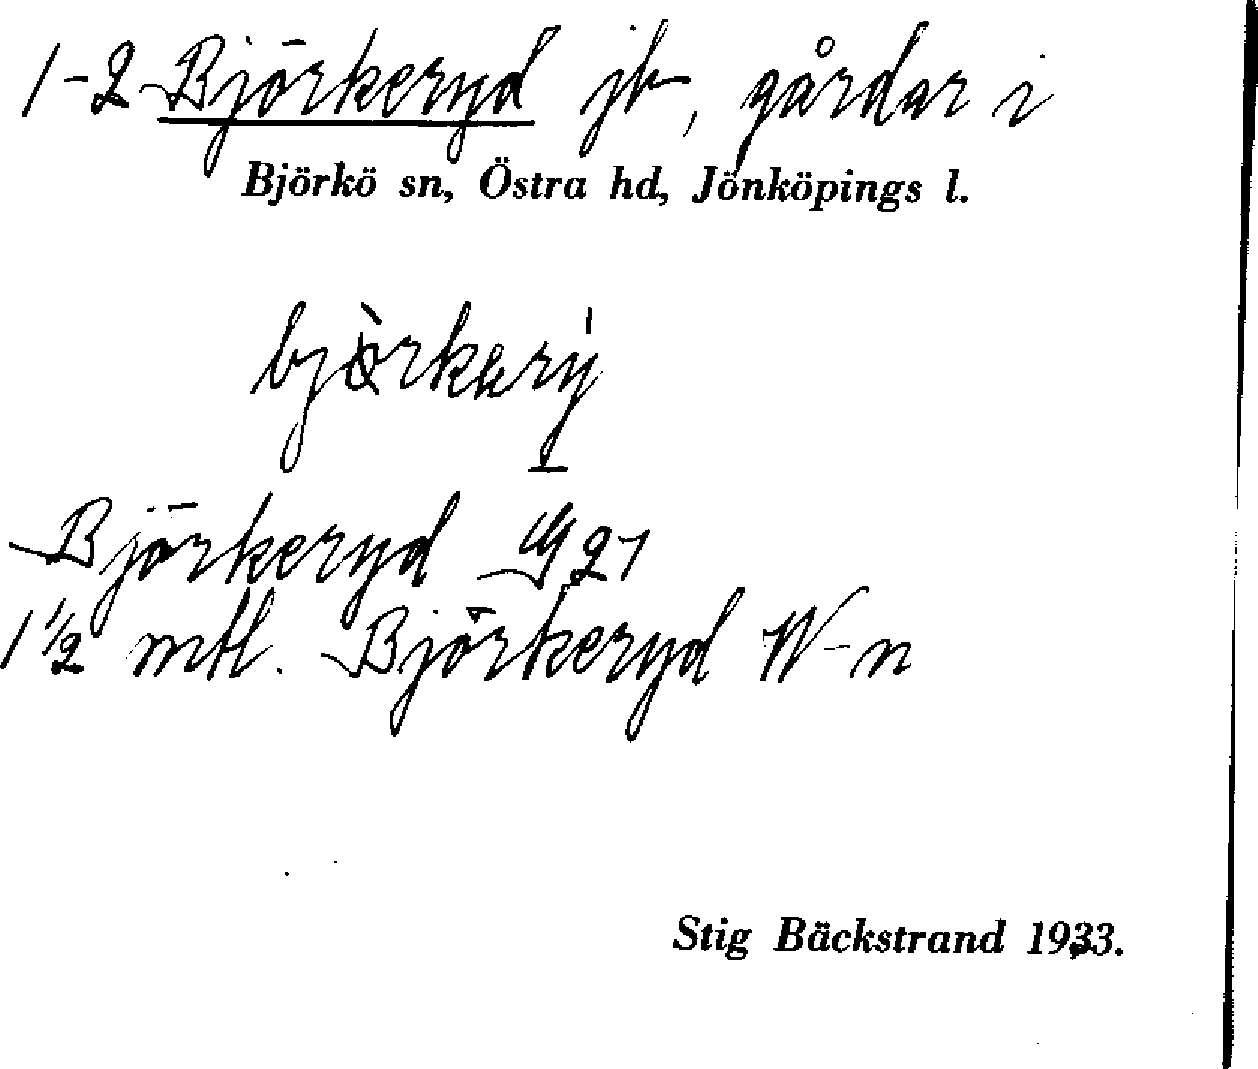 1-2 Björkeryd jb, gårdar i
Björkö sn, Östra hd, Jönköpings l.
Björkeryd G 21
1 1/2 mtl. Björkeryd W-n
Stig Bäckstrand 1933.